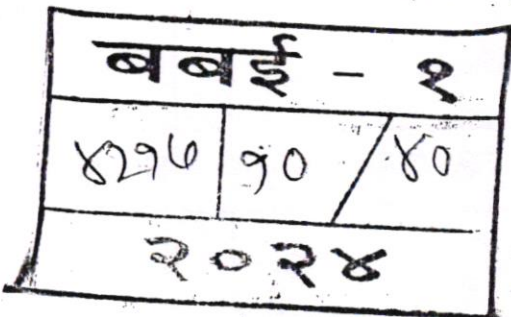 बबई - १
४२१७ १० / ४०
२०२४